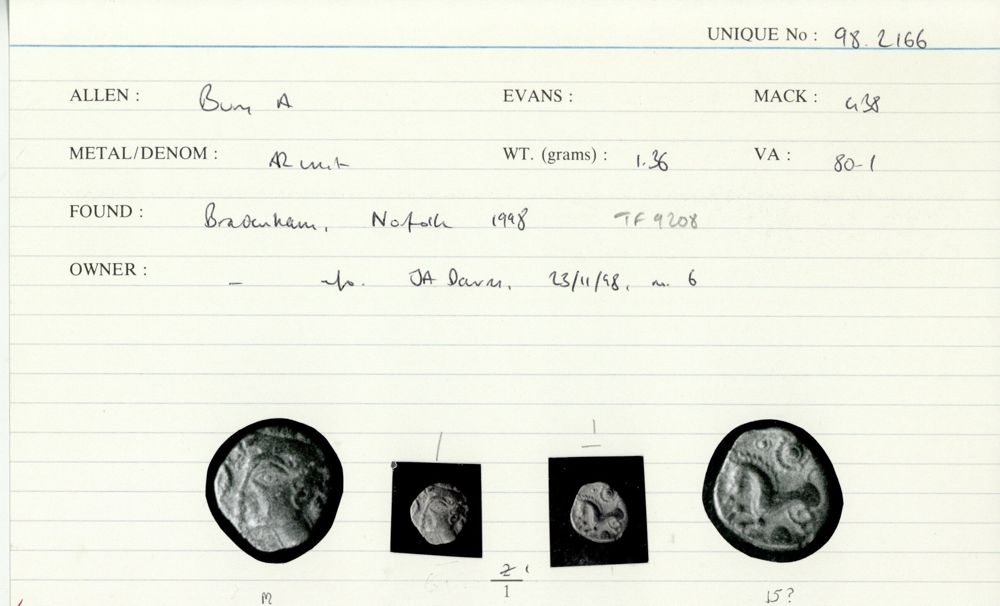 UNIQUE No : 98.2166
ALLEN : Bury A EVANS : MACK : 438
METAL/DENOM : AR unit WT. (grams) : 1.36 VA : 80-1
FOUND : Bradenham, Norfolk 1998 TF 9208
OWNER : - info. JA Davies, 23/11/98, no. 6
2
1
M 15?